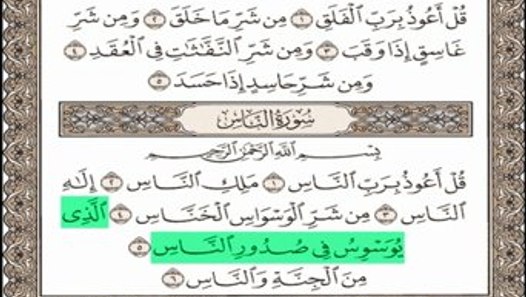 قُلْ أَعُوذُ بِرَبِّ ٱلْفَلَقِ ١ مِن شَرِّ مَا خَلَقَ ٢ وَمِن شَرِّ
غَاسِقٍ إِذَا وَقَبَ ٣ وَمِن شَرِّ ٱلنَّفَّـٰثَـٰتِ فِى ٱلْعُقَدِ ٤
وَمِن شَرِّ حَاسِدٍ إِذَا حَسَدَ ٥
سُورَةُ النَّاسِ
بِسْمِ ٱللَّهِ ٱلرَّحْمَـٰنِ ٱلرَّحِيمِ
قُلْ أَعُوذُ بِرَبِّ ٱلنَّاسِ ١ مَلِكِ ٱلنَّاسِ ٢ إِلَـٰهِ
ٱلنَّاسِ ٣ مِن شَرِّ ٱلْوَسْوَاسِ ٱلْخَنَّاسِ ٤ ٱلَّذِى
يُوَسْوِسُ فِى صُدُورِ ٱلنَّاسِ ٥
مِنَ ٱلْجِنَّةِ وَٱلنَّاسِ ٦